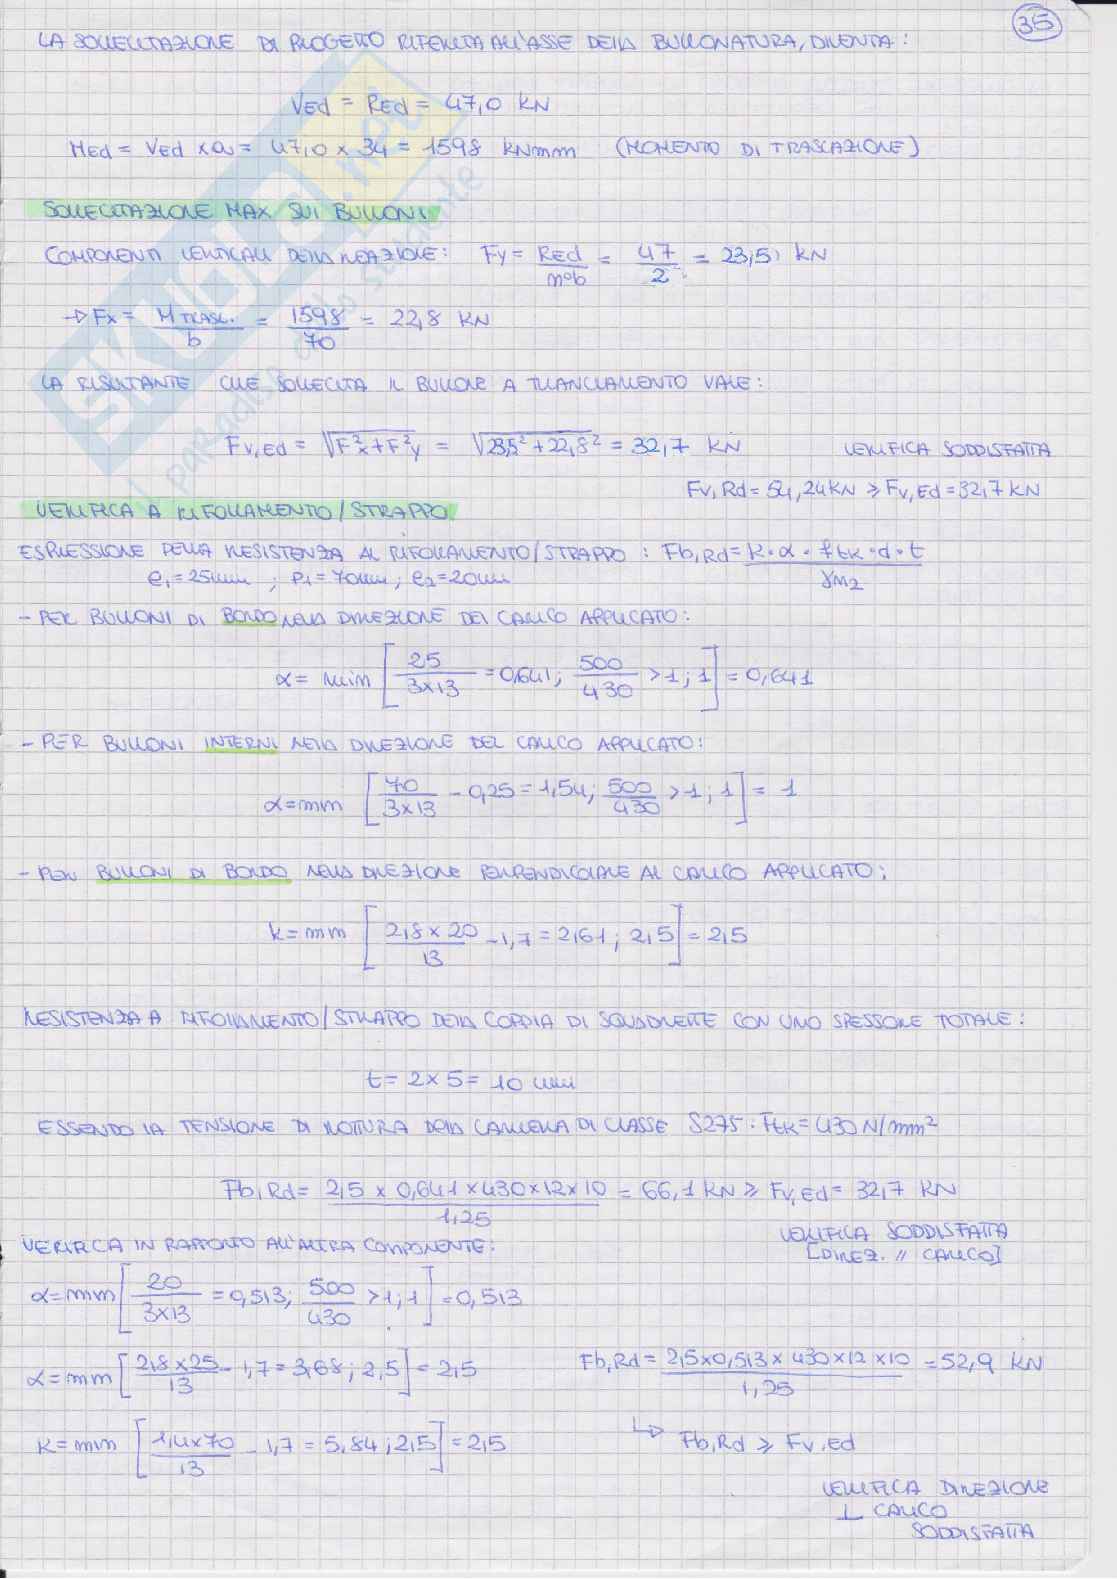 35
LA SOLLECITAZIONE DI PROGETTO RIFERITA ALL'ASSE DELLA BULLONATURA, DIVENTA:
VEd = REd = 47,0 KN
MEd = VEd x a = 47,0 x 34 = 1598 KNmm (MOMENTO DI TRASLAZIONE)
SOLLECITAZIONE MAX SUI BULLONI
COMPONENTI VERTICALI DELLA REAZIONE: Fy = REd/n°b = 47/2 = 23,5 KN
→ Fx = M TRASL./b = 1598/70 = 22,8 KN
LA RISULTANTE CHE SOLLECITA IL BULLONE A TRANCIAMENTO VALE:
Fv,Ed = √F²x+F²y = √23,5²+22,8² = 32,7 KN VERIFICA SODDISFATTA
Fv,Rd = 54,24 KN ≥ Fv,Ed = 32,7 KN
VERIFICA A RIFOLLAMENTO/STRAPPO
ESPRESSIONE DELLA RESISTENZA AL RIFOLLAMENTO/STRAPPO: Fb,Rd = K·α·ftk·d·t/γM2
e1=25mm ; p1=70mm ; e2=20mm
- PER BULLONI DI BORDO NELLA DIREZIONE DEL CARICO APPLICATO:
α = min [25/3x13 = 0,641; 500/430 >1; 1] = 0,641
- PER BULLONI INTERNI NELLA DIREZIONE DEL CARICO APPLICATO:
α = min [70/3x13 - 0,25 = 1,54; 500/430 >1; 1] = 1
- PER BULLONI DI BORDO NELLA DIREZIONE PERPENDICOLARE AL CARICO APPLICATO:
K = min [2,8 x 20/13 - 1,7 = 2,61; 2,5] = 2,5
RESISTENZA A RIFOLLAMENTO/STRAPPO DELLA COPPIA DI SQUADRETTE CON UNO SPESSORE TOTALE:
t = 2 x 5 = 10 mm
ESSENDO LA TENSIONE DI ROTTURA DELLA LAMIERA DI CLASSE S275: Ftk = 430 N/mm²
Fb,Rd = 2,5 x 0,641 x 430 x 12 x 10/1,25 = 66,1 KN ≥ Fv,Ed = 32,7 KN
VERIFICA SODDISFATTA
[DIREZ. // CARICO]
VERIFICA IN RAPPORTO ALL'ALTRA COMPONENTE:
α = min [20/3x13 = 0,513; 500/430 >1; 1] = 0,513
α = min [2,8 x 25/13 - 1,7 = 3,68; 2,5] = 2,5 Fb,Rd = 2,5 x 0,513 x 430 x 12 x 10/1,25 = 52,9 KN
K = min [1,4x70/13 - 1,7 = 5,84; 2,5] = 2,5 ↳ Fb,Rd ≥ Fv,Ed
VERIFICA DIREZIONE
⊥ CARICO
SODDISFATTA
SKUOLA.net
il paradiso dello studente